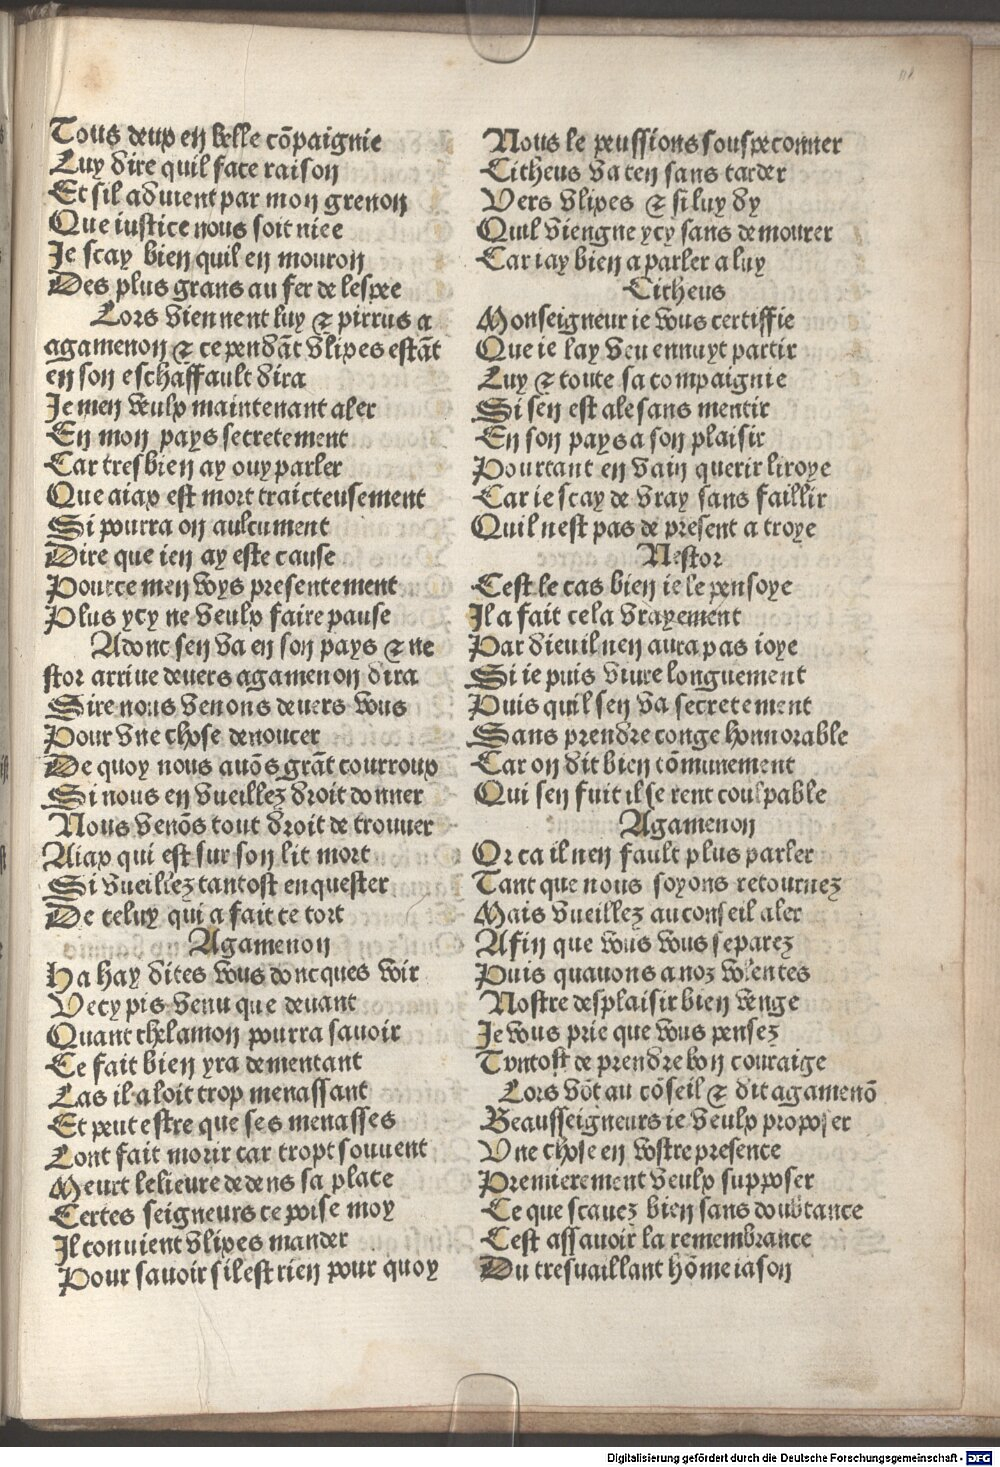 Tous deux en belle cõpaignie
Luy dire quil face raison
Et sil aduient par mon grenon
Que iustice nous soit niee
Je scay bien quil en mouron
Des plus grans au fer de lespee
Lors viennent luy & pirrus a
agamenon & ce pendãt vlixes estãt
en son eschaffault dira
Je men veulx maintenant aler
En mon pays secretement
Car tresbien ay ouy parler
Que aiax est mort traicteusement
Si pourra on aulcument
Dire que ien ay este cause
Pource men voys presentement
Plus ycy ne veulx faire pause
Adonc sen va en son pays & ne
stor arriue deuers agamenon dira
Sire nous venons deuers vous
Pour vne chose denoncer
De quoy nous auõs grãt courroux
Si nous en vueillez droit donner
Nous venõs tout droit de trouuer
Aiax qui est sur son lit mort
Si vueillez tantost enquester
De celuy qui a fait ce tort
Agamenon
Ha hay dites vous doncques voir
Vecy pis venu que deuant
Quant thelamon pourra sauoir
Ce fait bien yra dementant
Las il aloit trop menassant
Et peut estre que ses menasses
Lont fait morir car tropt souuent
Meurt le lieure dedens sa place
Certes seigneurs ce poise moy
Il conuient vlixes mander
Pour sauoir sil est rien pour quoy
Nous le peussions souspeconner
Citheus va ten sans tarder
Vers vlixes & si luy dy
Quil viengne ycy sans demourer
Car iay bien a parler a luy
Citheus
Monseigneur ie vous certiffie
Que ie lay veu ennuyt partir
Luy & toute sa compaignie
Si sen est ale sans mentir
En son pays a son plaisir
Pourtant en vain querir liroye
Car ie scay de vray sans faillir
Quil nest pas de present a troye
Nestor
Cest le cas bien ie le pensoye
Il a fait cela vrayement
Par dieu il nen aura pas ioye
Si ie puis viure longuement
Puis quil sen va secretement
Sans prendre conge honnorable
Car on dit bien cõmunement
Qui sen fuit il se rent coulpable
Agamenon
Or ca il nen fault plus parler
Tant que nous soyons retournez
Mais vueillez au conseil aler
Afin que vous vous separez
Puis quauons a noz volentes
Nostre desplaisir bien venge
Je vous prie que vous pensez
Tvntost de prendre bon couraige
Lors võt au cõseil & dit agamenõ
Beausseigneurs ie veulx proposer
Vne chose en vostre presence
Premierement veulx supposer
Ce que scauez bien sans doubtance
Cest assauoir la remembrance
Du tresuaillant hõme iason
Digitalisierung gefördert durch die Deutsche Forschungsgemeinschaft - DFG